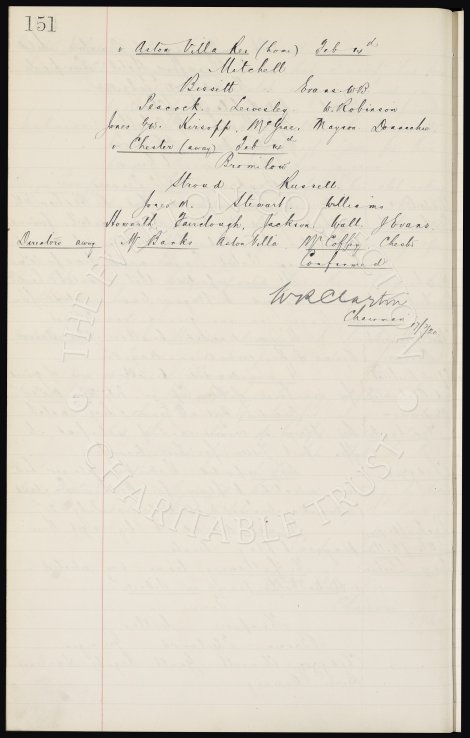 151
v Aston Villa Res (home) Feb
Mitchell
Bissett Evans. W.B
Peacock. Lewesley W. Robinson
Jones G.W. Kirsopp, McGrae, Mayson Donnachie
v Chester (away) Feb
Bromilow
Stroud Russell
Jones R. Stewart. Williams
Howarth Fairclough, Jackson, Wall. J Evans
Directors away Mr Banks Aston Villa Mr Coffey Chester
Confirmed
W R Clayton
Chairman
© THE EVERTON COLLECTION CHARITABLE TRUST